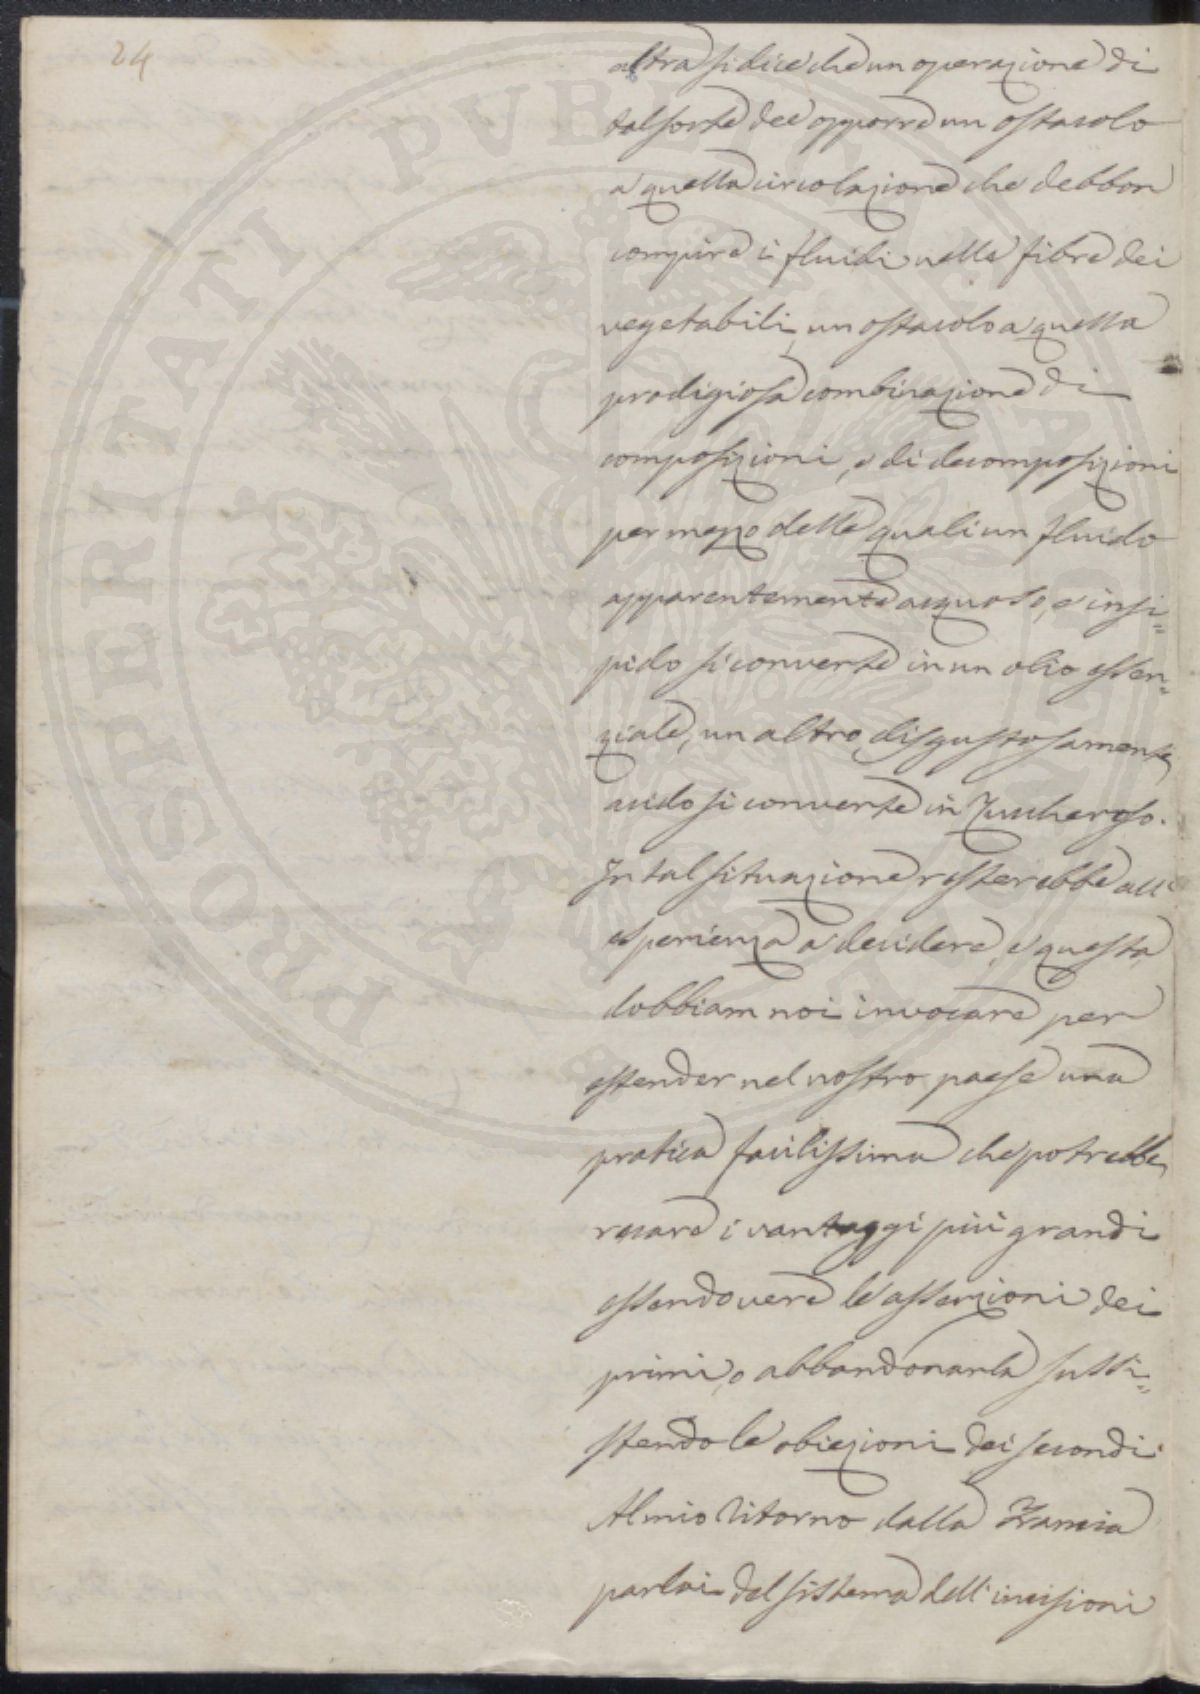 24
altra si dice che un operazione di
tal sorte dee opporre un ostacolo
a quella circolazione che debbon
compire i fluidi nelle fibre dei
vegetabili, un ostacolo a quella
prodigiosa combinazione di
composizioni, e di decomposizioni
per mezzo delle quali un fluido
apparentemente acquoso, e insi=
pido si converte in un olio essen=
ziale, un altro disgustosamente
acido si converte in Zuccheroso.
In tal situazione resterebbe all'
esperienza a decidere, e questa
dobbiam noi invocare per
estender nel nostro paese una
pratica facilissima che potrebbe
recare i vantaggi più grandi
essendo vere le asserzioni dei
primi, o abbandonarla sussi=
stendo le obiezioni dei secondi.
Al mio ritorno dalla Francia
parlai del sistema dell'incisioni
PROSPERITATI PUBLICAE AUGENDAE